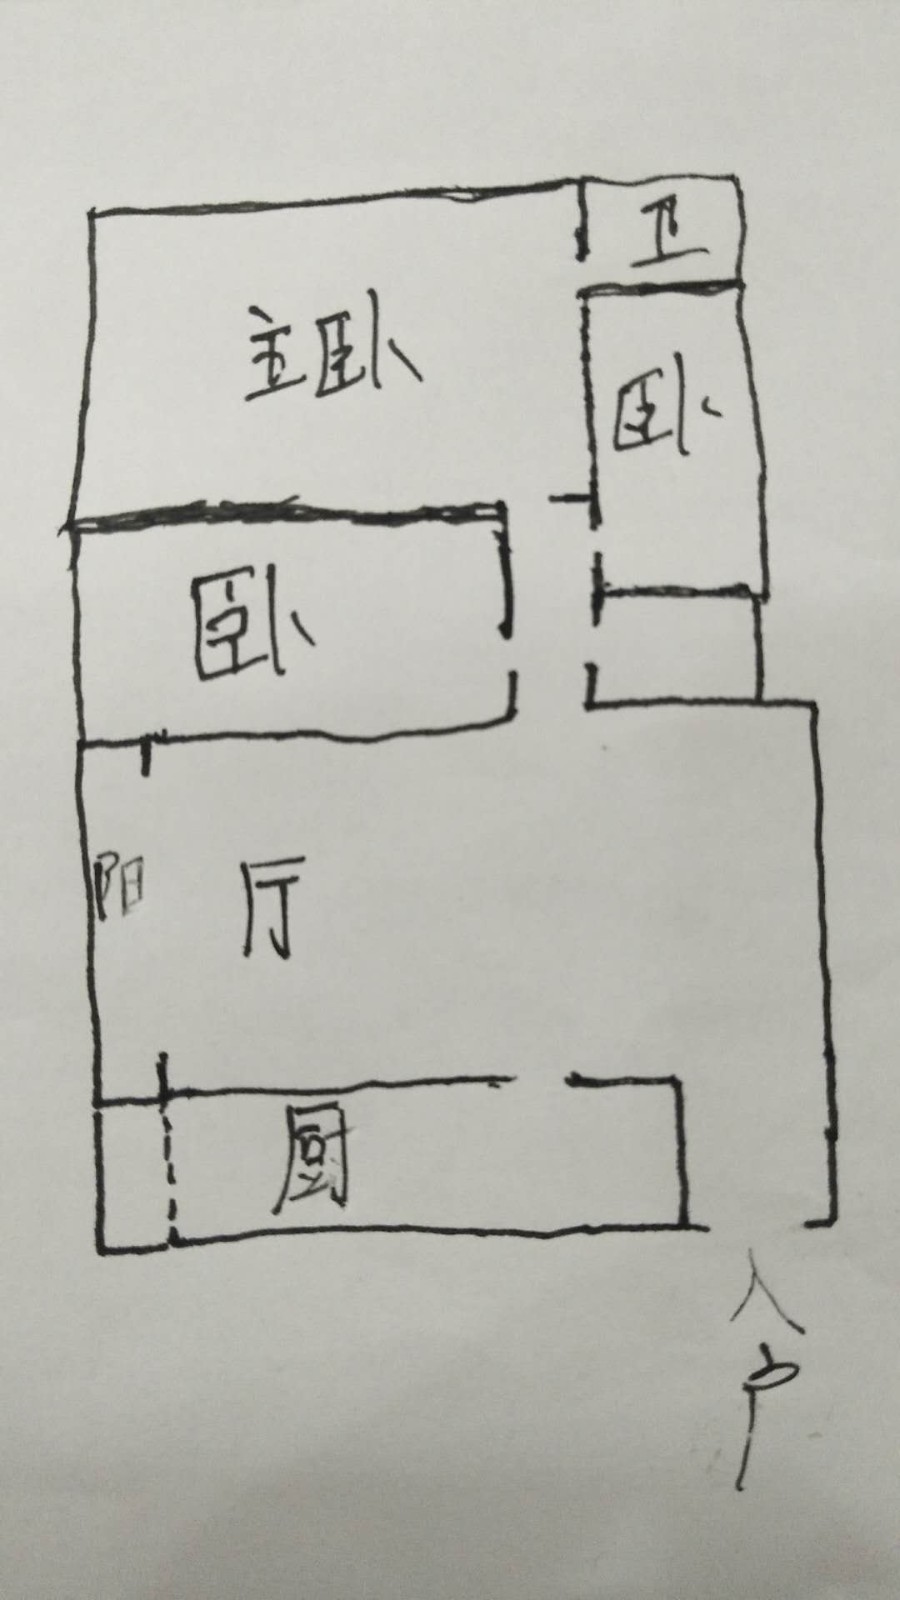 卫
主卧
卧
卧
阳
厅
厨
入
户